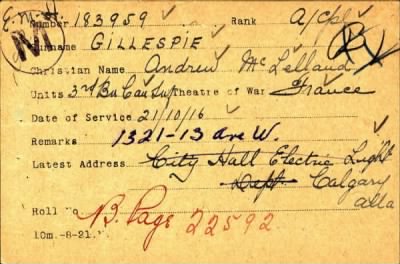 Number 183959 Rank A/Cpl
Surname GILLESPIE (B)
Christian Name Andrew McLelland
Units 3rd Bn Can Inf Theatre of War France
Date of Service 21/10/16
Remarks 1321-13 Ave W.
Latest Address City Hall Electric Light
Dept Calgary
Alta
Roll No B. Page 22592
10m.-8-21.